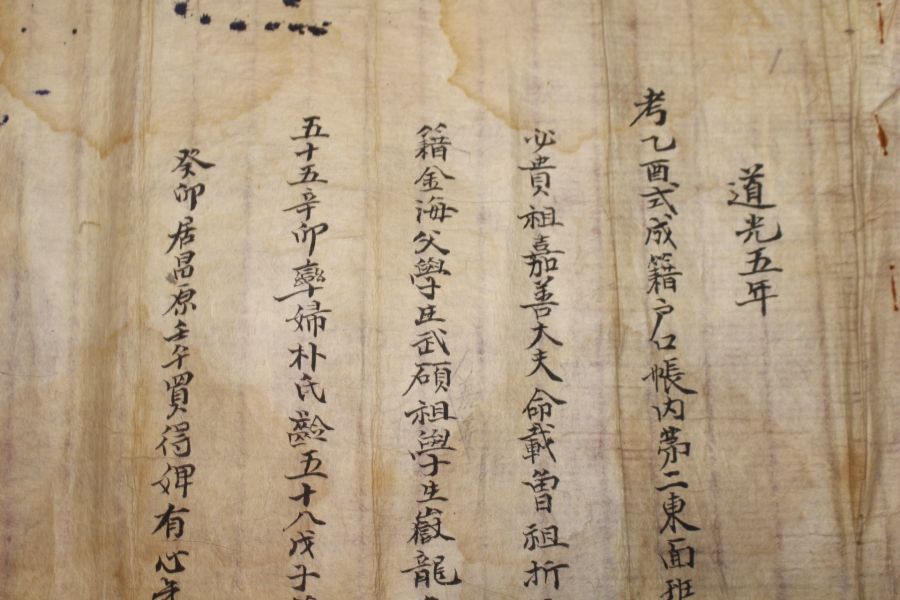 道光五年
考乙酉式成籍户口帳内苐二東面班
必貴祖嘉善大夫命載曾祖折
籍金海父學生武碩祖學生嶽龍
五十五辛卯率婦朴氏齡五十八戊子
癸卯居昌原壬午買得婢有心